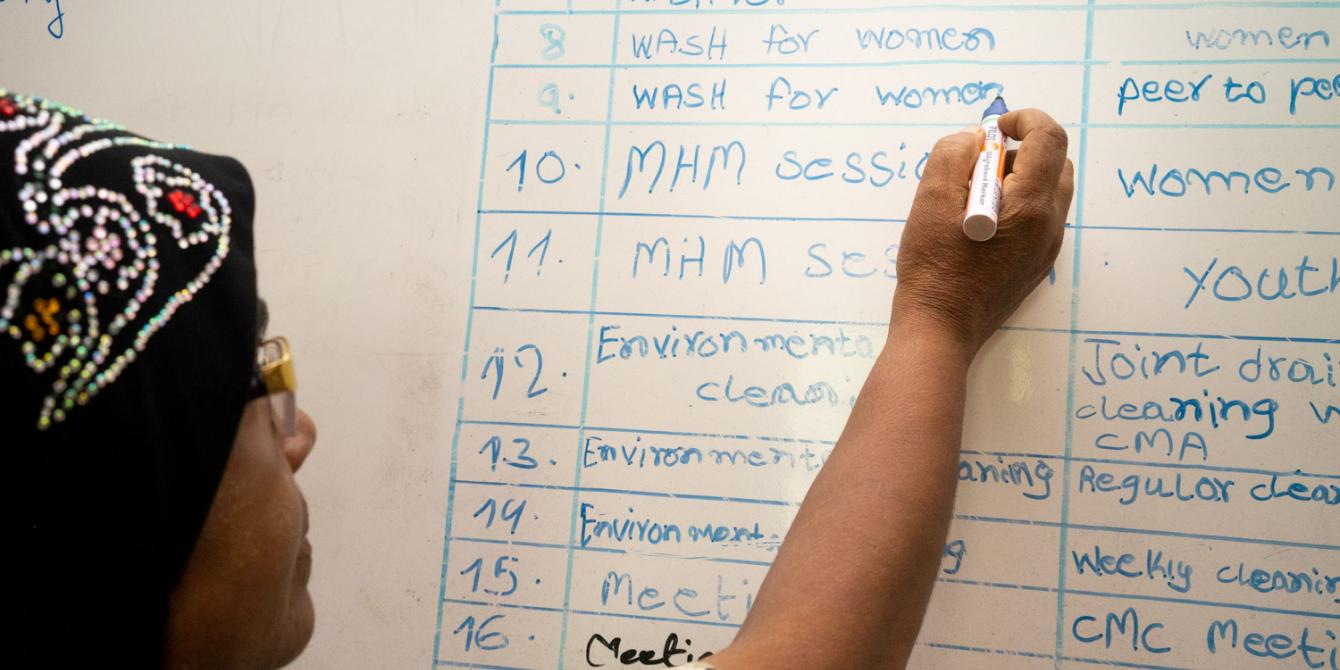 8 WASH for women women
9. WASH for women peer to pee
10. MHM sessio women
11. MHM ses youth
12. Environmenta Joint drai
cleani cleaning w
CMA
13. Environment aning Regular clea
14. Environment g Weekly cleanin
15. Meeti CMC Meeti
16. Meetin